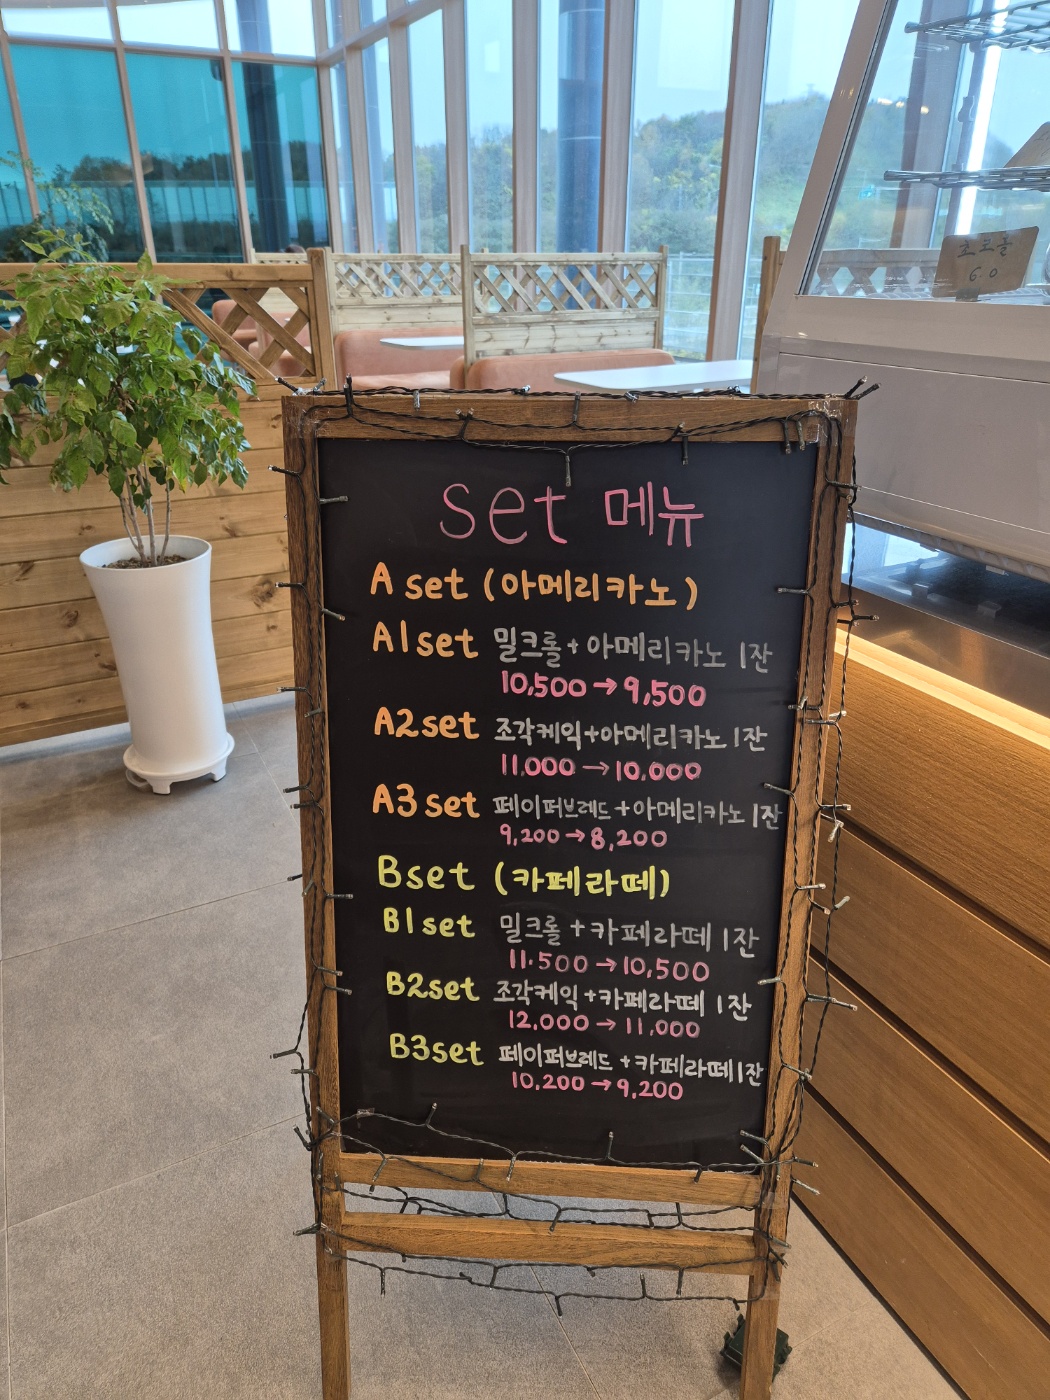 set 메뉴
A set (아메리카노)
A1set 밀크롤+아메리카노 1잔
10,500→9,500
A2set 조각케익+아메리카노 1잔
11,000→10,000
A3set 페이퍼브레드+아메리카노 1잔
9,200→8,200
Bset (카페라떼)
B1set 밀크롤+카페라떼 1잔
11.500→10,500
B2set 조각케익+카페라떼 1잔
12.000→11,000
B3set 페이퍼브레드+카페라떼 1잔
10,200→9,200
6.0